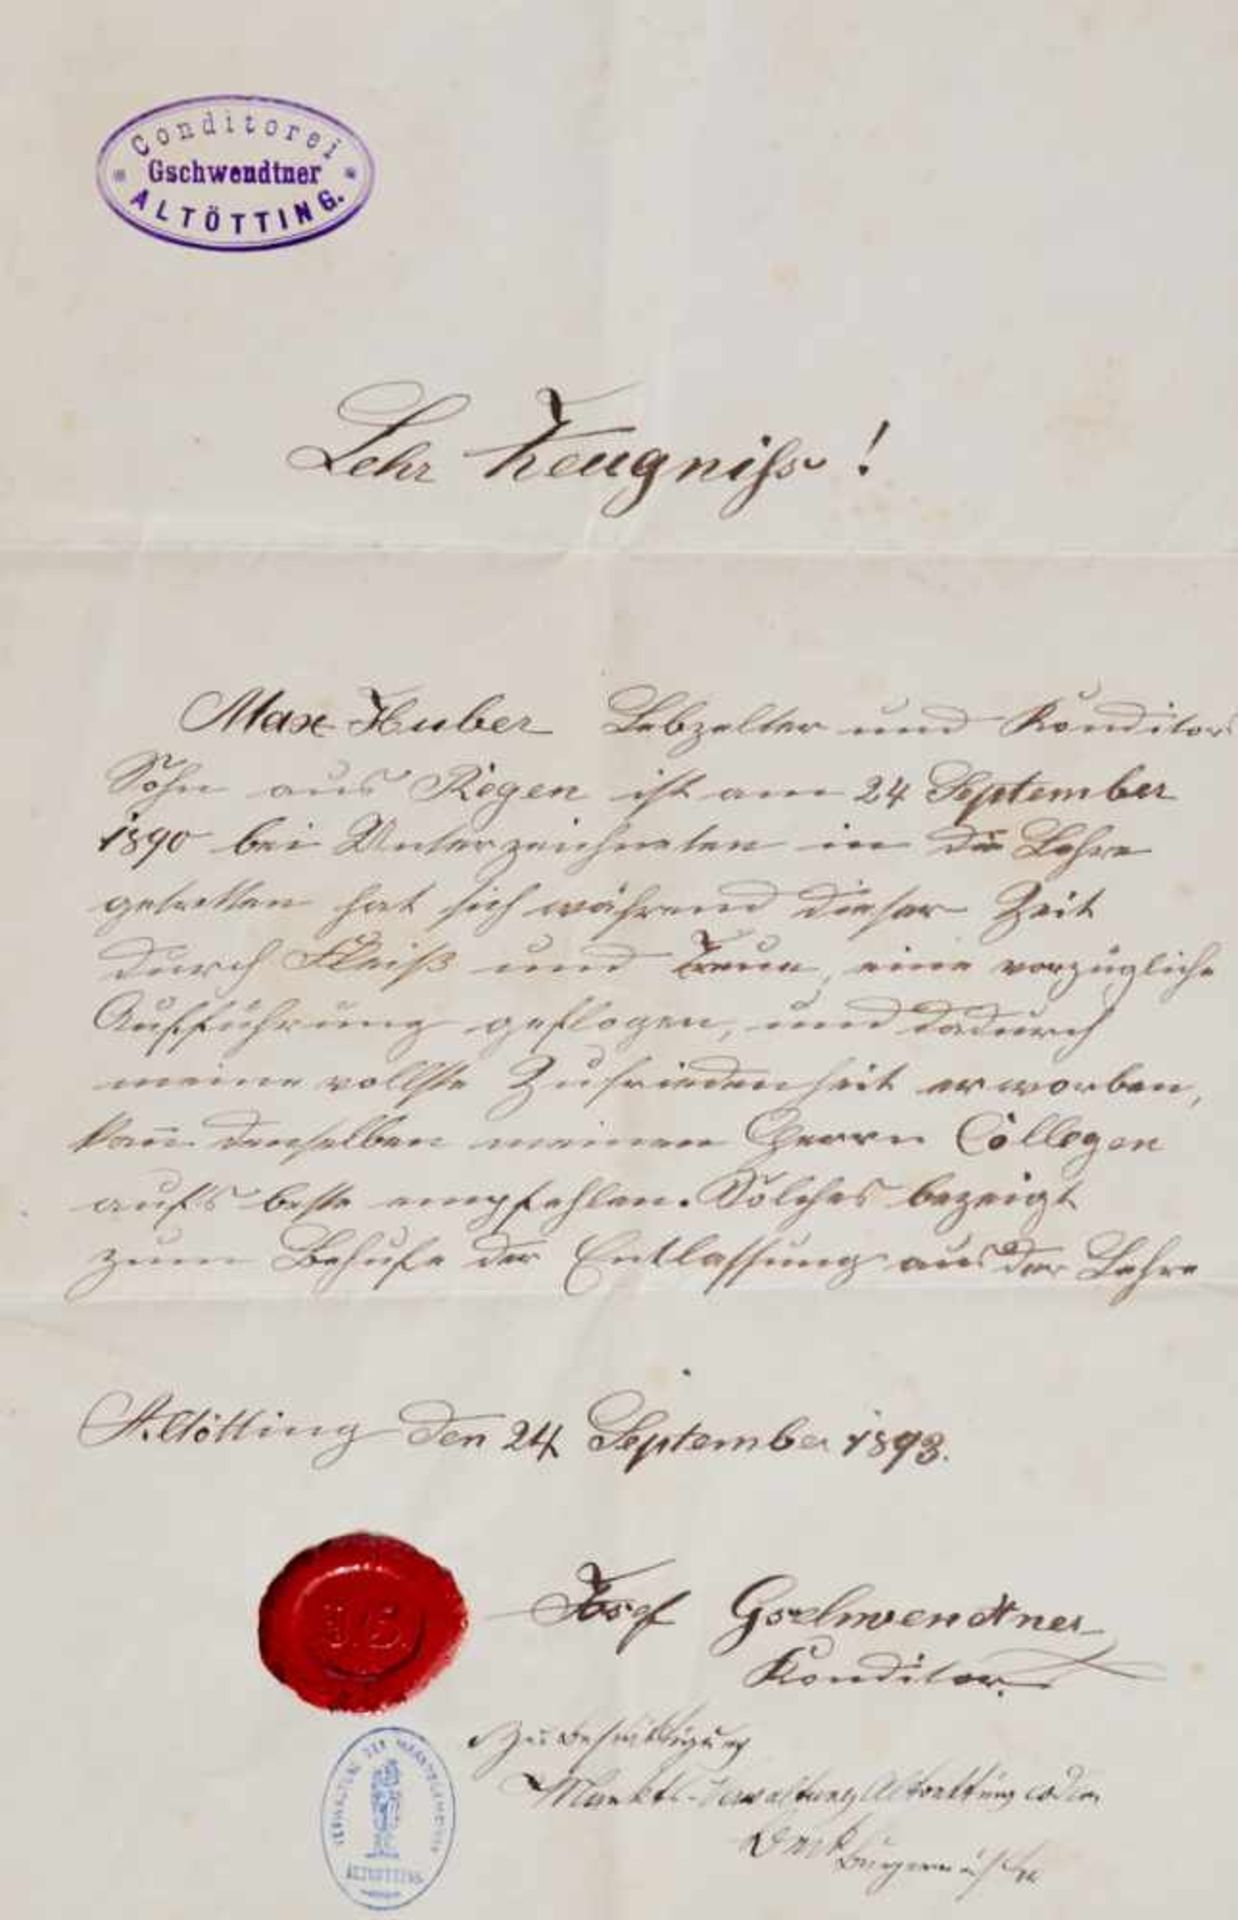 Conditorei
Gschwendtner
ALTÖTTING.
Lehr Zeugniss!
Max Huber Lebzelter und Konditors
Sohn aus Regen ist am 24 September
1890 bei Unterzeichneten in die Lehre
getretten hat sich während dieser Zeit
durch Fleiß und Treue, eine vorzügliche
Aufführung gepflogen, und dadurch
meine vollste Zufriedenheit erworben,
kan̄ denselben meinen Herrn Collegen
auf's beste empfehlen. Solches bezeigt
zum Behufe der Entlassung aus der Lehre
Altötting den 24 September 1893.
J.G.
Josef Gschwendtner
Konditor.
VERWALTUNG DER MARKTGEMEINDE
ALTÖTTING
Zur Bestättigung
Markts-Verwaltung Altoetting
Bürgermeister